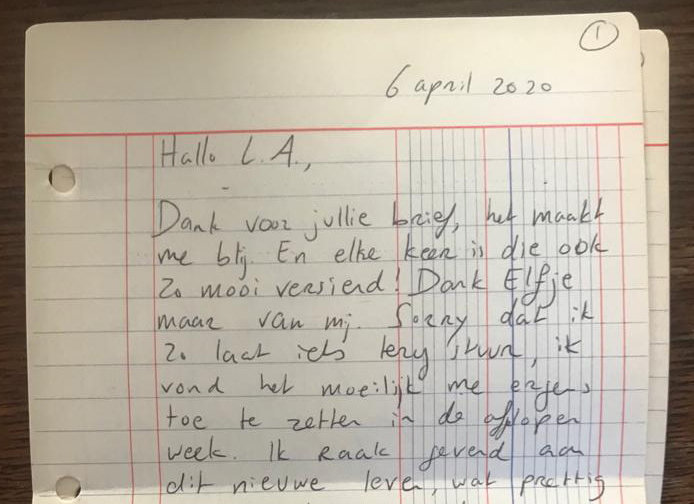 1
6 april 2020
Hallo L.A.,
Dank voor jullie brief, het maakt
me blij. En elke keer is die ook
zo mooi versierd! Dank Elfje
maar van mij. Sorry dat ik
zo laat iets terug stuur, ik
vond het moeilijk me ergens
toe te zetten in de afgelopen
week. Ik raak gewend aan
dit nieuwe leven, wat prettig